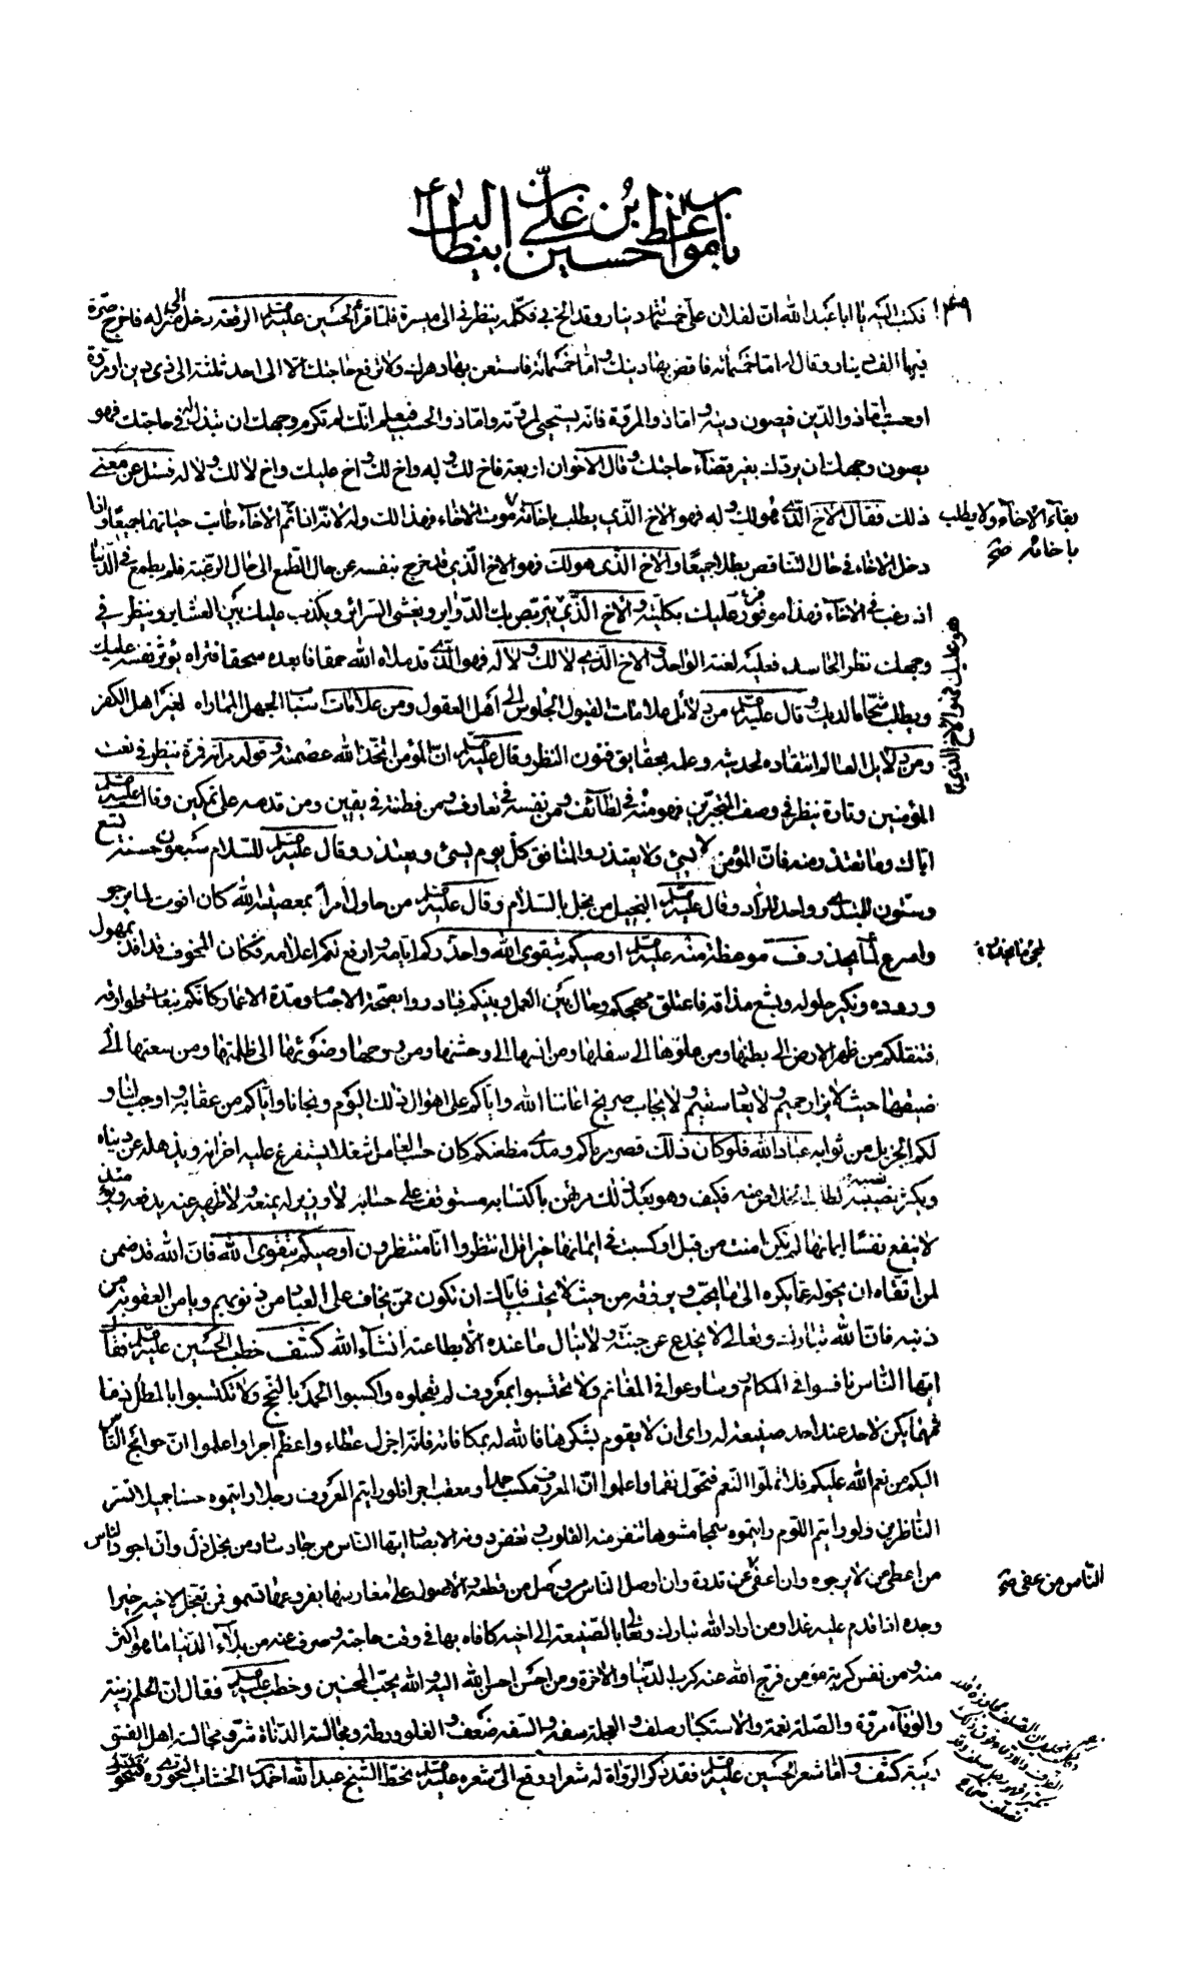 باب مواعظ حسين بن علي بن ابيطالب ع
١٤٩ فكتب اليه يا ابا عبد الله ان لفلان علي خمسمائة دينار وقد الح بي فكلمه ينظرني الى ميسرة فلما قرأ الحسين عليه السلم الرقعة دخل الى منزله فاخرج صرة
فيها الف دينار وقال له اما خمسمائة فاقض بها دينك واما خمسمائة فاستعن بها على دهرك ولا ترفع حاجتك الا الى احد ثلثة الى ذي دين او مروة
او حسب فاما ذو الدين فيصون دينه واما ذو المروة فانه يستحيي لمروته واما ذو الحسب فيعلم انك لم تكرم وجهك ان تبذله في حاجتك فهو
يصون وجهك ان يردك بغير قضاء حاجتك وقال الاخوان اربعة فاخ لك وله واخ لك واخ عليك واخ لا لك ولا له فسئل عن معنى
ذلك فقال الاخ الذي هو لك وله فهو الاخ الذي يطلب باخائه موت الاخاء فهذا لك وله لانه اذا تم الاخاء طابت حياتهما جميعا واذا
بقاء الاخاء ولا يطلب باخائه صح
دخل الاخاء في حال التناقص بطلا جميعا والاخ الذي هو لك فهو الاخ الذي قد خرج بنفسه عن حال الطمع الى حال الرغبة فلم يطمع في الدنيا
اذ رغب في الاخاء فهذا موفور عليك بكليته والاخ الذي يتربص بك الدواير ويغشى السرائر ويكذب عليك بين العشاير وينظر في
هو عليك فهو الاخ الذي
وجهك نظر الحاسد فعليه لعنة الواحد والاخ الذي لا لك ولا له فهو الذي قد ملاه الله حمقا فابعده سحقا فتراه يؤثر نفسه عليك
ويطلب شحا ما لديك وقال عليه السلم من دلائل علامات القبول الجلوس الى اهل العقول ومن علامات اسباب الجهل المماراة لغير اهل الكفر
ومن دلايل العالم انتقاده لحديثه وعلمه بحقايق فنون النظر وقال عليه السلم ان المؤمن اتخذ الله عصمته وقوله مرآته فمرة ينظر في نعت
المؤمنين وتارة ينظر في وصف المتجبرين فهو منه في لطائف ومن نفسه في تعارف ومن فطنته في يقين ومن قدسه على تمكين وقال عليه السلم
اياك وما تعتذر منه فان المؤمن لا يسيئ ولا يعتذر والمنافق كل يوم يسيئ ويعتذر وقال عليه السلم للسلام سبعون حسنة تسع
وستون للمبتدي وواحد للراد وقال عليه السلم البخيل من بخل بالسلام وقال عليه السلم من حاول امرا بمعصية الله كان افوت لما يرجو
واسرع لما يحذر ف موعظة منه عليه السلم اوصيكم بتقوى الله واحذركم ايامه وارفع لكم اعلامه فكان المخوف قد افد بمهول
لمجئ ما يحذر
وروده ونكير حلوله وبشع مذاقه فاعتلق مهجكم وحال بين العمل وبينكم فبادروا بصحة الاجسام ومدة الاعمار كانكم ببغات طوارقه
فتنقلكم من ظهر الارض الى بطنها ومن علوها الى سفلها ومن انسها الى وحشتها ومن روحها وضوئها الى ظلمتها ومن سعتها الى
ضيقها حيث لا يزار حميم ولا يعاد سقيم ولا يجاب صريخ اعاننا الله واياكم على اهوال ذلك اليوم ونجانا واياكم من عقابه واوجب لنا و
لكم الجزيل من ثوابه عباد الله فلو كان ذلك قصر مرماكم ومدى مظعنكم كان حسب العامل شغلا يستفرغ عليه احزانه ويذهله عن دنياه
ويكثر نصبه لطلب الخلاص منه فكيف وهو بعد ذلك مرتهن باكتسابه مستوقف على حسابه لا وزير له يمنعه ولا ظهير عنه يدفعه ويومئذ
لا ينفع نفسا ايمانها لم تكن امنت من قبل او كسبت في ايمانها خيرا قل انتظروا انا منتظرون اوصيكم بتقوى الله فان الله قد ضمن
لمن اتقاه ان يحوله عما يكره الى ما يحب ويرزقه من حيث لا يحتسب فاياك ان تكون ممن يخاف على العباد من ذنوبهم ويامن العقوبة من
ذنبه فان الله تبارك وتعالى لا يخدع عن جنته ولا ينال ما عنده الا بطاعته انشاء الله كشف خطب الحسين عليه السلم فقال
ايها الناس نافسوا في المكارم وسارعوا في المغانم ولا تحتسبوا بمعروف لم تعجلوه واكسبوا الحمد بالنجح ولا تكتسبوا بالمطل ذما
فمهما يكن لاحد عند احد صنيعة له راى ان لا يقوم بشكرها فالله له بمكافاته فانه اجزل عطاء واعظم اجرا واعلموا ان حوائج الناس
اليكم من نعم الله عليكم فلا تملوا النعم فتحول نقما واعلموا ان المعروف مكسب حمدا ومعقب اجرا فلو رايتم المعروف رجلا رايتموه حسنا جميلا تسر
الناظرين ولو رايتم اللوم رايتموه سمجا مشوها تنفر منه القلوب وتغض دونه الابصار ايها الناس من جاد ساد ومن بخل رذل وان اجود الناس
من اعطى من لا يرجوه وان اعفى عن قدرة وان اوصل الناس من وصل من قطعه والاصول على مغارسها بفروعها تسمو فمن تعجل لاخيه خيرا
الناس من عفى صح
وجده اذا قدم عليه غدا ومن اراد الله تبارك وتعالى بالصنيعة الى اخيه كافاه بها في وقت حاجته وصرف عنه من بلاء الدنيا ما هو اكثر
منه ومن نفس كربة مؤمن فرج الله عنه كرب الدنيا والاخرة ومن احسن احسن الله اليه والله يحب المحسنين وخطب عليه السلم فقال ان الحلم زينة
والوفاء مروة والصلة نعمة والاستكبار صلف والعجلة سفه والسفه ضعف والغلو ورطة ومجالسة الدناة شر ومجالسة اهل الفسق
ريبة كشف واما شعر الحسين عليه السلم فقد ذكر الرواة له شعرا ووقع الي شعره عليه السلم بخط الشيخ عبد الله احمد بن الخشاب النحوي